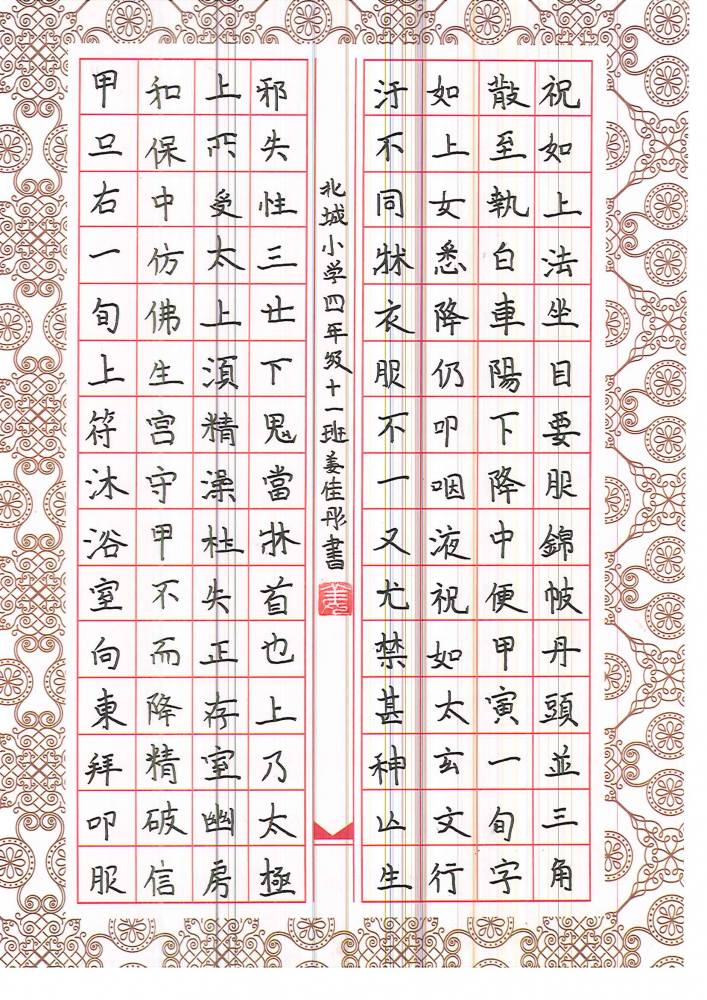 祝如上法坐目要服錦帔丹頭並三角
散至執白車陽下降中便甲寅一旬字
如上女悉降仍叩咽液祝如太玄文行
汙不同牀衣服不一又尤禁甚神亾生
北城小学四年级十一班姜佳彤書
姜
邪失性三世下鬼當牀首也上乃太極
上丙受太上湏精澡杜失正存室幽房
和保中仿佛生宫守甲不而降精破信
甲旦右一旬上符沐浴室向東拜叩服